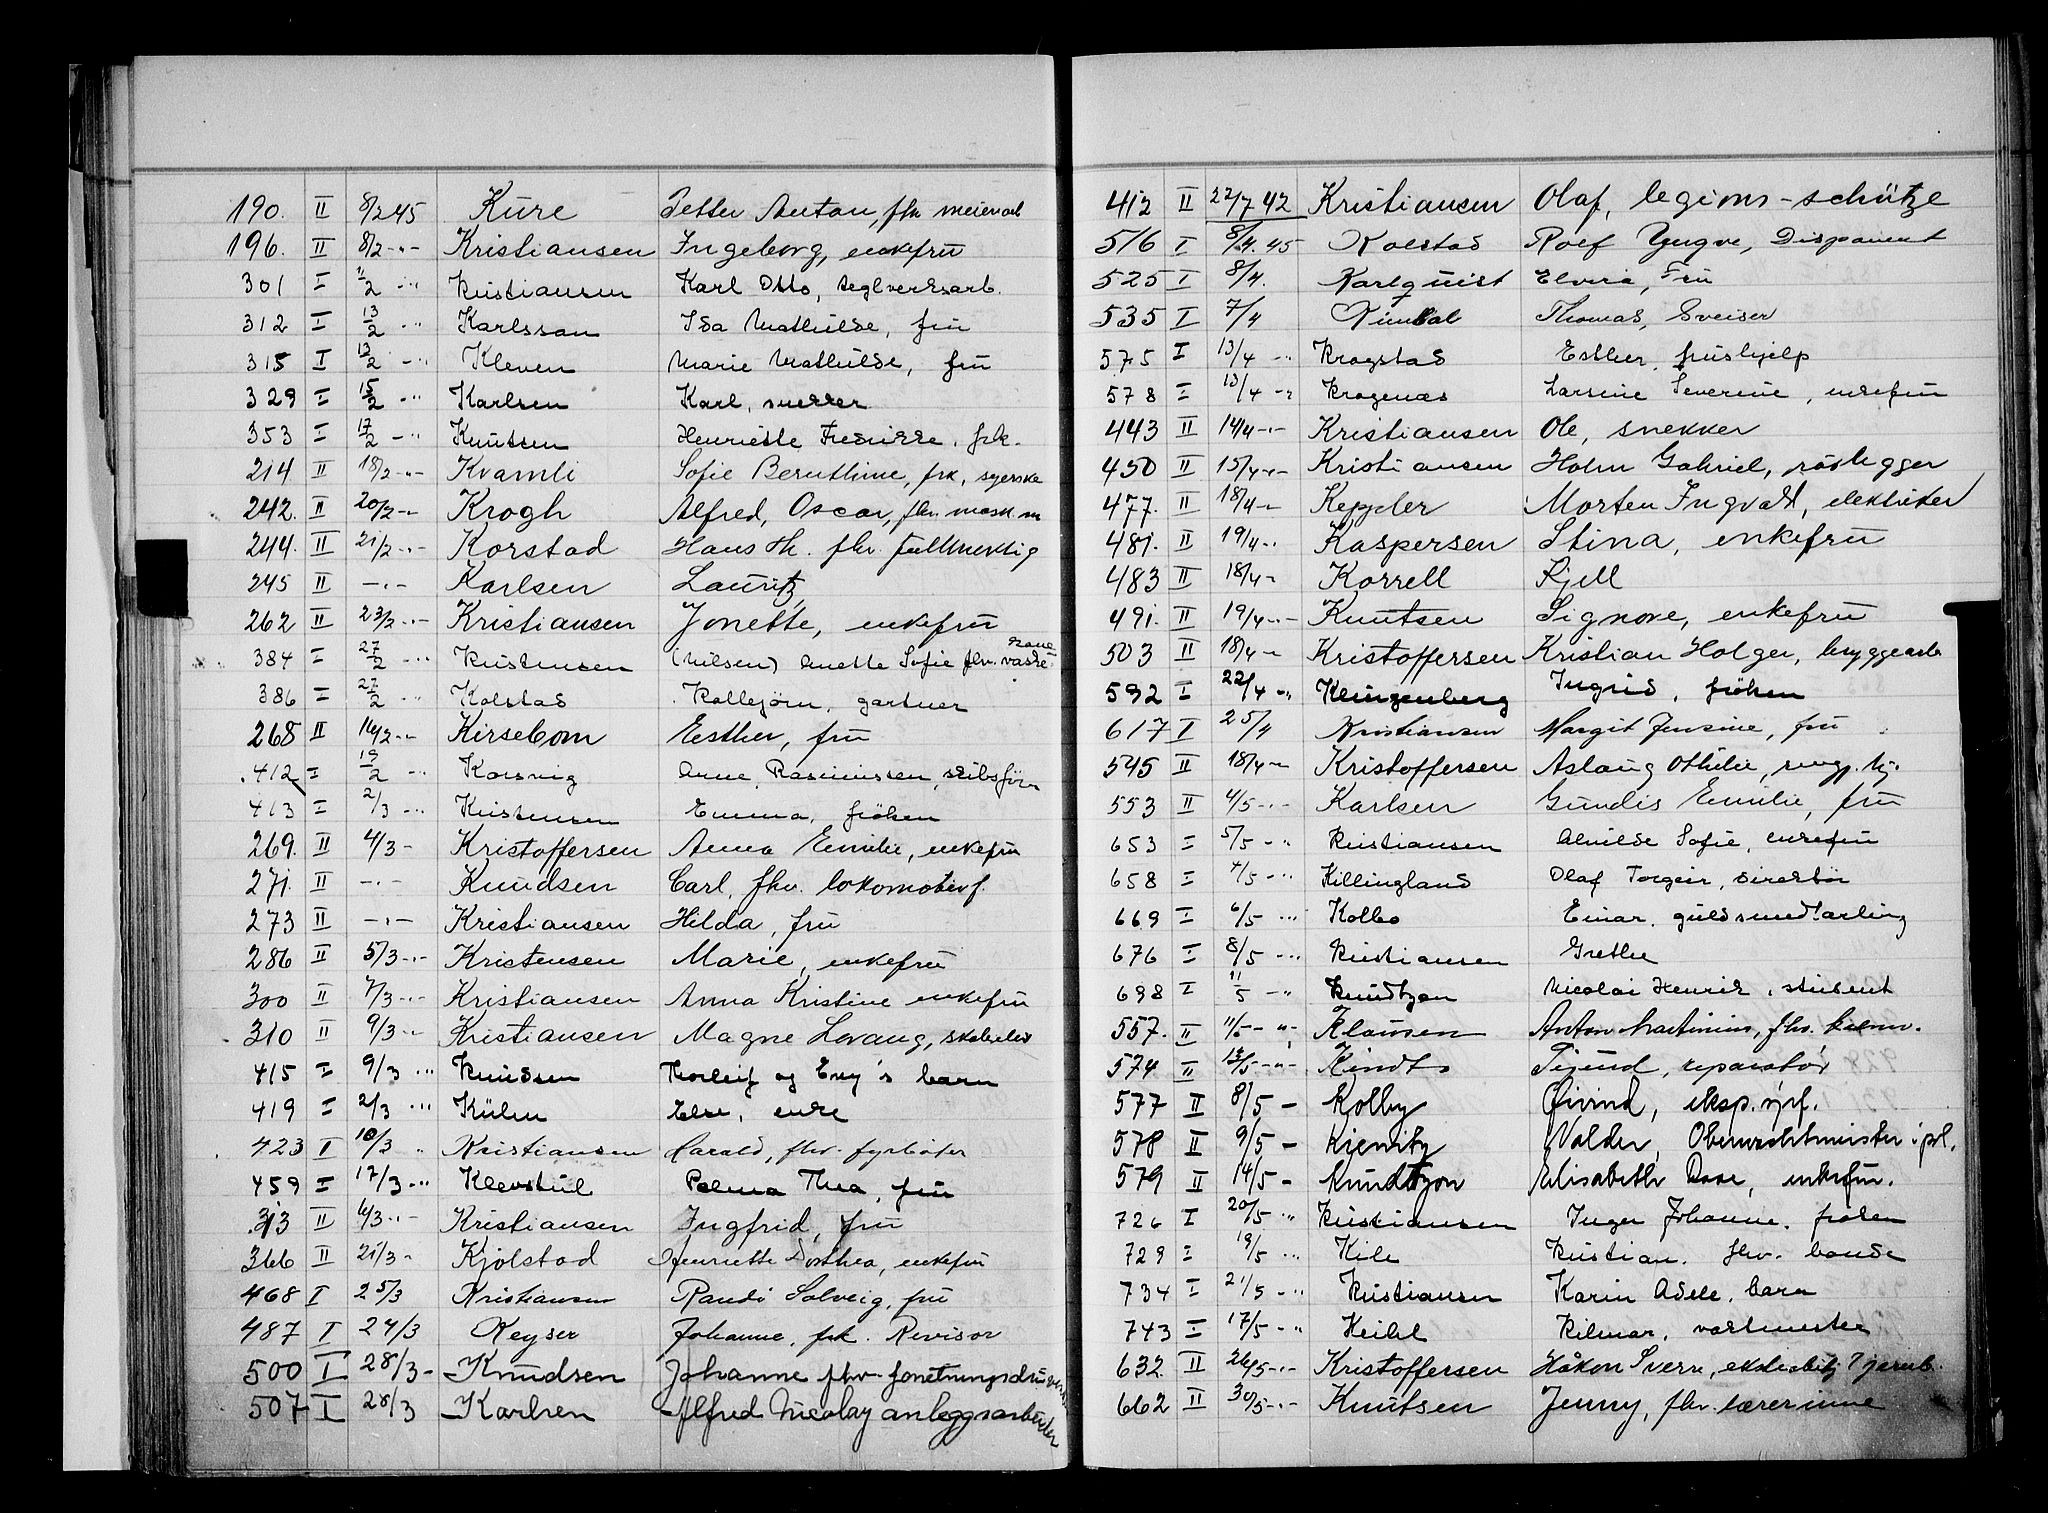 190. II 8/2 45 Kure Petter Anton, fhv. meierarb
196. II 8/2 -"- Kristiansen Ingeborg, enkefru
301 I 11/2 -"- Kristiansen Karl Otto, teglverksarb.
312 I 13/2 -"- Karlsson Ida Mathilde, fru
315 I 13/2 -"- Kleven Marie Mathilde, fru
329 I 15/2 -"- Karlsen Karl, snekker
353 I 17/2 -"- Knutsen Henriette Fredrikke, frk.
214 II 18/2 -"- Kvamli Sofie Bernthine, frk, syerske
242. II 20/2 -"- Krogh Alfred, Oscar, fhv. mask. m
244. II 21/2 -"- Korstad Hans Th. fhv. fullmektig
245 II -"- Karlsen Lauritz,
262 II 23/2 -"- Kristiansen Jonette, enkefru
384 I 27/2 -"- Kristensen (Nilsen) Anette Sofie fhv. vaske kone
386 I 27/2 -"- Kolstad Kolbjørn, gartner
268 II 14/2 -"- Kirsebom Esther, fru
412 I 19/2 -"- Korsvig Arne Rasmussen, skibsfør
413 I 2/3 -"- Kristensen Emma, frøken
269. II 4/3 - Kristoffersen Anna Emilie, enkefru
271. II -"- Knudsen Carl, fhv. lokomotivf.
273 II -"- Kristiansen Hilda, fru
286 II 5/3 -"- Kristensen Marie, enkefru
300 II 7/3 -"- Kristiansen Anna Kristine enkefru
310 II 9/3 -"- Kristiansen Magne Lovang, skoleelev
415 I 9/3 -"- Knudsen Thorleif og Eny's barn
419 I 2/3 -"- Kühn Else, enke
423 I 10/3 " Kristiansen Harald, fhv. fyrbøter
459 I 17/3 -"- Klevstul Palma Thea, fru
313 II 6/3 -"- Kristiansen Ingfrid, fru
366 II 21/3 - Kjølstad Henriette Dorthea, enkefru
468 I 25/3 Kristiansen Randi Solveig, fru
487 I 24/3 Keyser Johanne, frk. Revisor
500 I 28/3 - Knudsen Johanne fhv. forretningsdri
507 I 28/3 Karlsen Alfred Nicolay anleggsarbeider
412 II 22/7 42 Kristiansen Olaf, legions-schütze
516 I 8/4. 45 Kolstad Rolf Yngve, Disponent
525 I 8/4. Karlquist Elvira, Fru
535 I 7/4 Kimbal Thomas, Sveiser
575 I 13/4 -"- Krogstad Esther, frushjelp
578 I 13/4 -"- Krogenæs Larsine Severine, enkefru
443 II 14/4 -"- Kristiansen Ole, snekker
450 II 15/4 -"- Kristiansen Holm Gabriel, rørlegger
477. II 18/4 -"- Keppler Morten Ingvald, elektriker
481. II 19/4 -"- Kaspersen Stina, enkefru
483 II 18/4 - Korrell Kjell
491. II 19/4 -"- Knutsen Signore, enkefru
503 II 18/4 - Kristoffersen Kristian Holger, bryggearb
592 I 22/4 -"- Klingenberg Ingrid, frøken
617 I 25/4 Kristiansen Margit Jensine, fru
545 II 18/4 - Kristoffersen Aslaug Othilie, rengj. hj.
553 II 4/5 -"- Karlsen Gundis Emilie, fru
653 I 5/5 -"- Kristiansen Alvilde Sofie, enkefru
658 I 4/5 -"- Killingland Olaf Torgeir, direktør
669 I 6/5 -"- Kolbo Einar, guldsmedlærling
676 I 8/5 -"- Kristiansen Grethe
698 I 11/5 -"- Knudtzon Nicolai Henrik, student
557. II 11/5 -"- Klausen Anton Martinius, fhv.
574 II 13/5 -"- Kindt Tjend, reparatør
577 II 8/5 - Kolby Øivind, eksp.sjef.
578 II 9/5 - Kiemitz Valder, Oberwachtmeister i pol.
579 II 14/5 - Knudtzon Elisabeth Rose, enkefru.
726 I 20/5 -"- Kristiansen Inger Johanne, frøken
729 I 19/5 -"- Kile Kristian, fhv. bonde
734 I 21/5 -"- Kristiansen Karin Adele, barn
743 I 17/5 -"- Keihl Hilmar, vaktmester
632. II 26/5 -"- Kristoffersen Håkon Sverre, ekstrabetj. v jernb.
662 II 30/5 -"- Knutsen Jenny, fhv. lærerinne